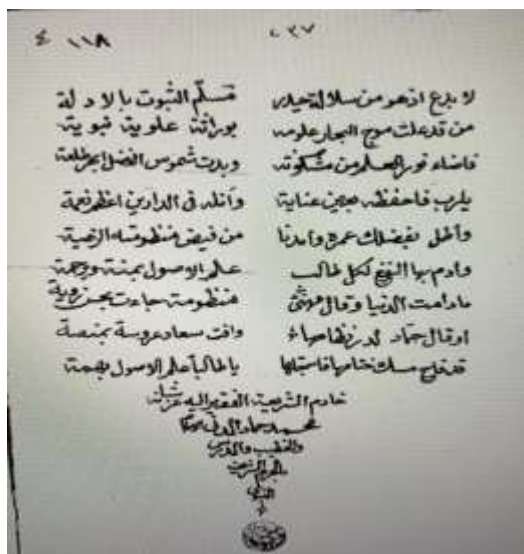 ٤ ١١٨ ٢٣٧
لا بدع اذ هو من سلالة حيدر مسلّم الثبوت بالادلة
من قد علت موج البحار علومه بوراثة علوية نبوية
فاضاء نور العلم من مشكوته وبدت شموس الفضل
يارب فاحفظه بعين عناية وأنله فى الدارين اعظم نعمة
وأطل بفضلك عمره وأمدنا من فيض منظومته الرضية
وأدم بها النفع لكل طالب علم الاصول بمنة ورحمة
مادامت الدنيا وقال منظومة جاءت بحسن روية
اوقال حماد لدر نظامها وافت سعاد عروسة بمنصة
مسك ختامها ياطالباً علم الاصول بهمة
خادم الشريعة الفقير اليه عز شأنه
محمد حماد
والخطيب والمدرس
بالحرم الشريف
النبوي